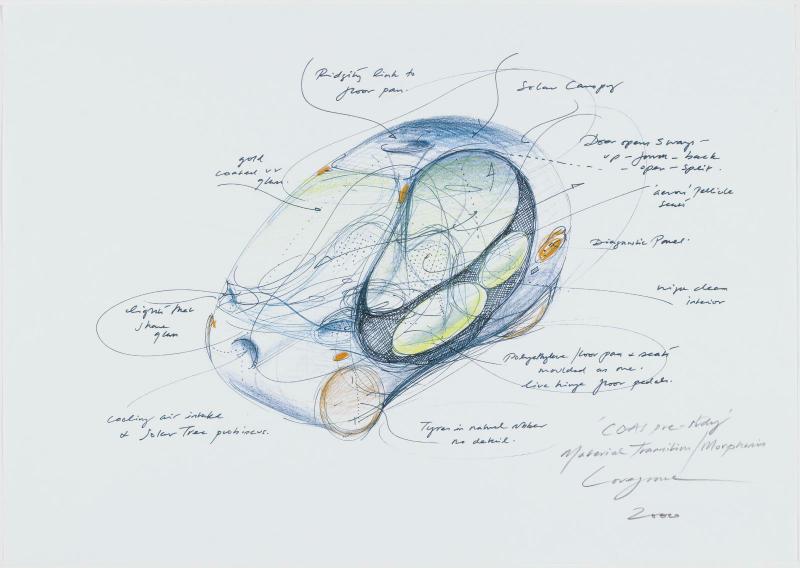 Ridgity link to
floor pan.
Solar Canopy
gold
coated uv
glass.
Door opens 3 ways –
up – down – back
– open – split.
'aeron' pellicle
seats
Diagnostic Panel.
wipe clean
interior
lights thai
share
glass
Polyethylene floor pan + seats
moulded as one.
live hinge floor pedals.
cooling air intake
& Solar Tree
Tyres in natural rubber
no detail.
pre-study'
Material Transition/Morphosis
Lovegrove